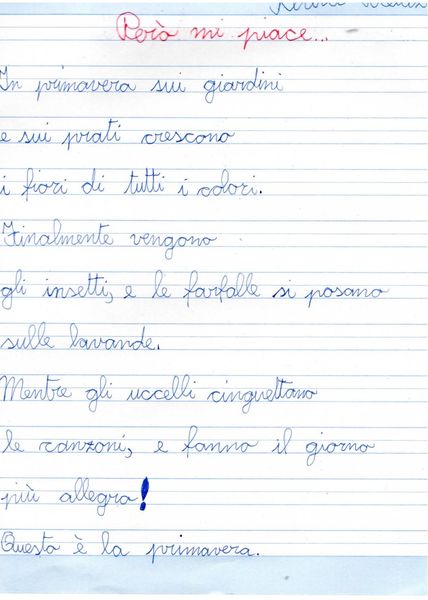 Però mi piace...
In primavera sui giardini
e sui prati crescono
i fiori di tutti i colori.
Finalmente vengono
gli insetti, e le farfalle si posano
sulle lavande.
Mentre gli uccelli cinguettano
le canzoni, e fanno il giorno
più allegro!
Questa è la primavera.